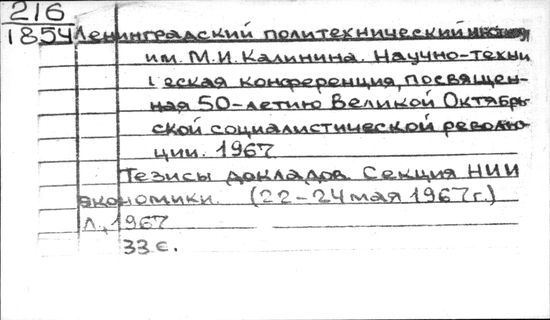 216
1854 Ленинградский политехнический институт
им. М.И. Калинина. Научно-техни
ческая конференция, посвящен-
ная 50-летию Великой Октябрь
ской социалистической револю-
ции. 1967
Тезисы докладов. Секция НИИ
экономики. (22-24 мая 1967г.)
Л., 1967
33 с.